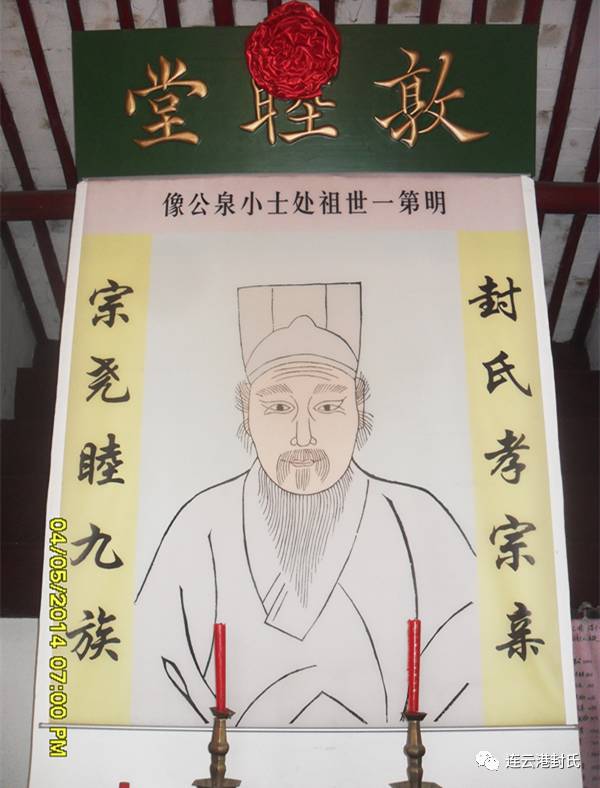 敦睦堂
明第一世祖处士小泉公像
封氏孝宗亲
宗尧睦九族
04/05/2014 07:00 PM
连云港封氏